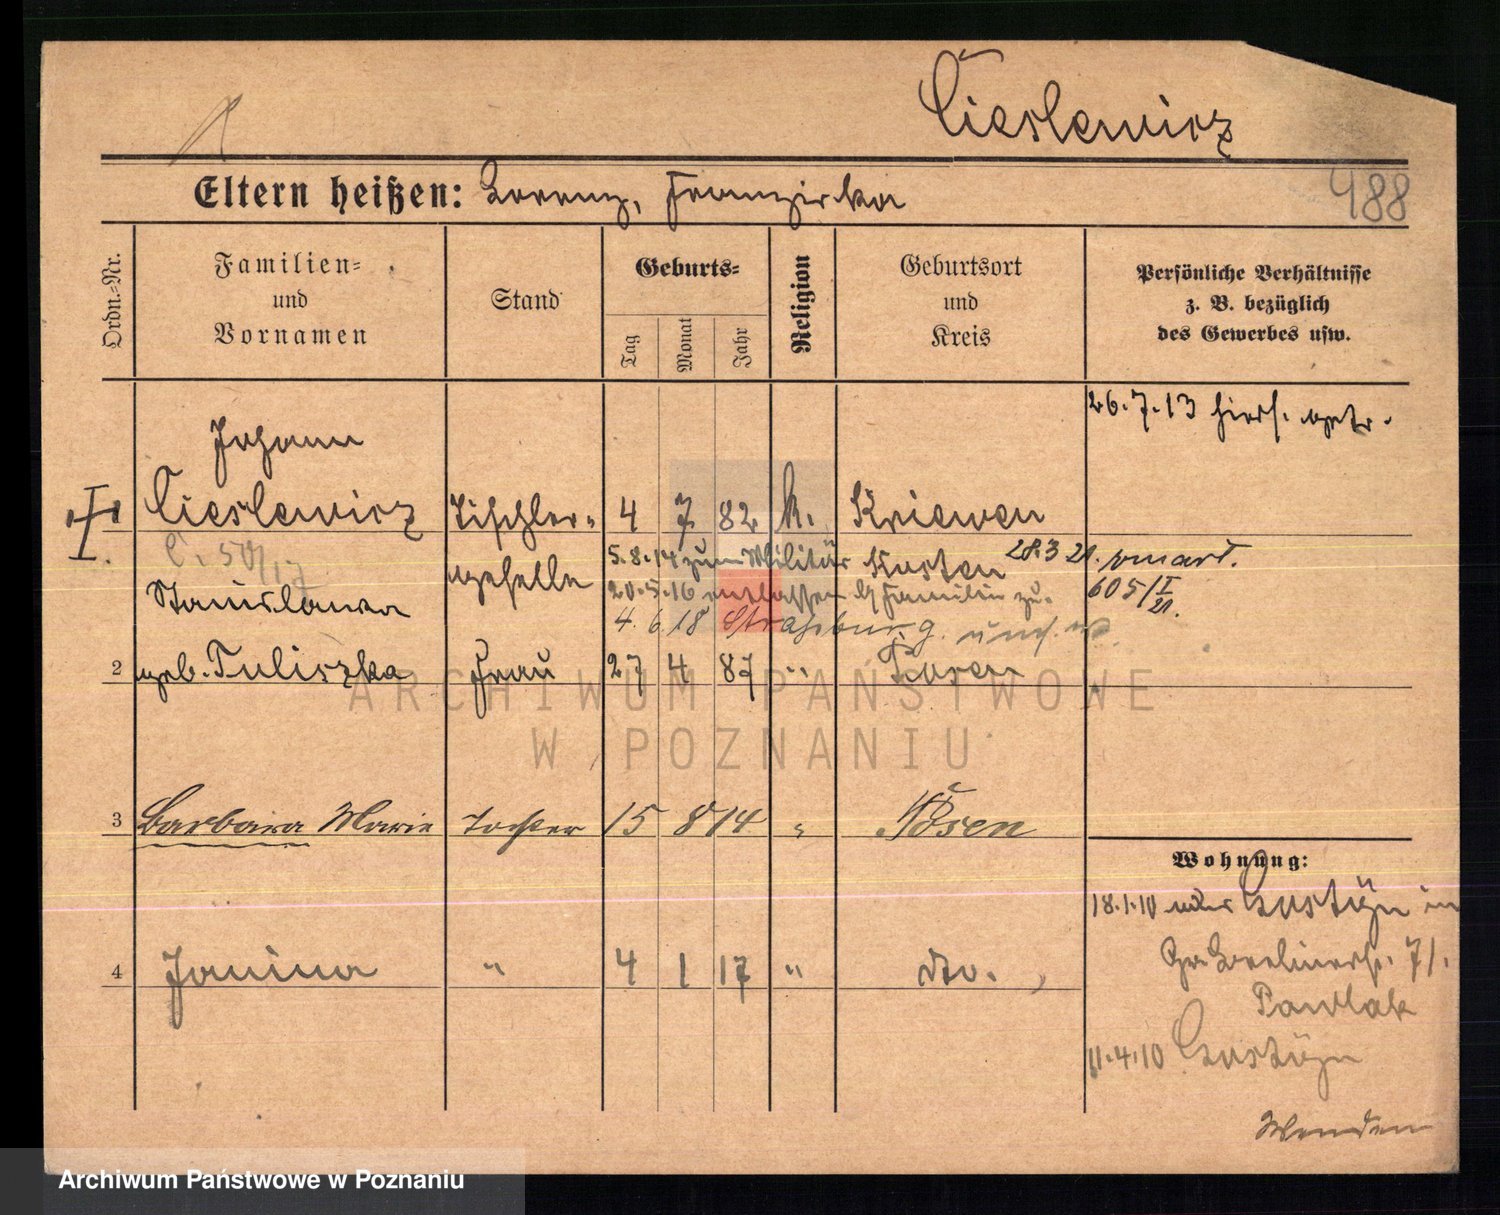 Cieslewicz
Eltern heißen: Lorenz, Franziska
488
Ordn.-Nr.
Familien-
und
Vornamen
Stand
Geburts-
Tag
Monat
Jahr
Religion
Geburtsort
und
Kreis
Persönliche Verhältnisse
z. B. bezüglich
des Gewerbes usw.
26.7.13 hiers. getr.
Johann
Cieslewicz Tischler- 4 7 82 k. Kriewen
geselle
5.8.14 zum Militär Kosten 28.3 21.
20.5.16 entlassen Familie zu.
605/I
21.
4.6.18 Strassburg
C. 50/17
Stanislawa
2 geb. Tuliszka Frau 27 4 87 " Posen
ARCHIWUM PAŃSTWOWE
W POZNANIU
3 Barbara Marie Tochter 15 8 14 " Posen
Wohnung:
18.1.10 in
4 Janina " 4 1 17 " dto.
Gr. Berlinerstr. 71.
Pawlak
11.4.10
Wenden
Archiwum Państwowe w Poznaniu